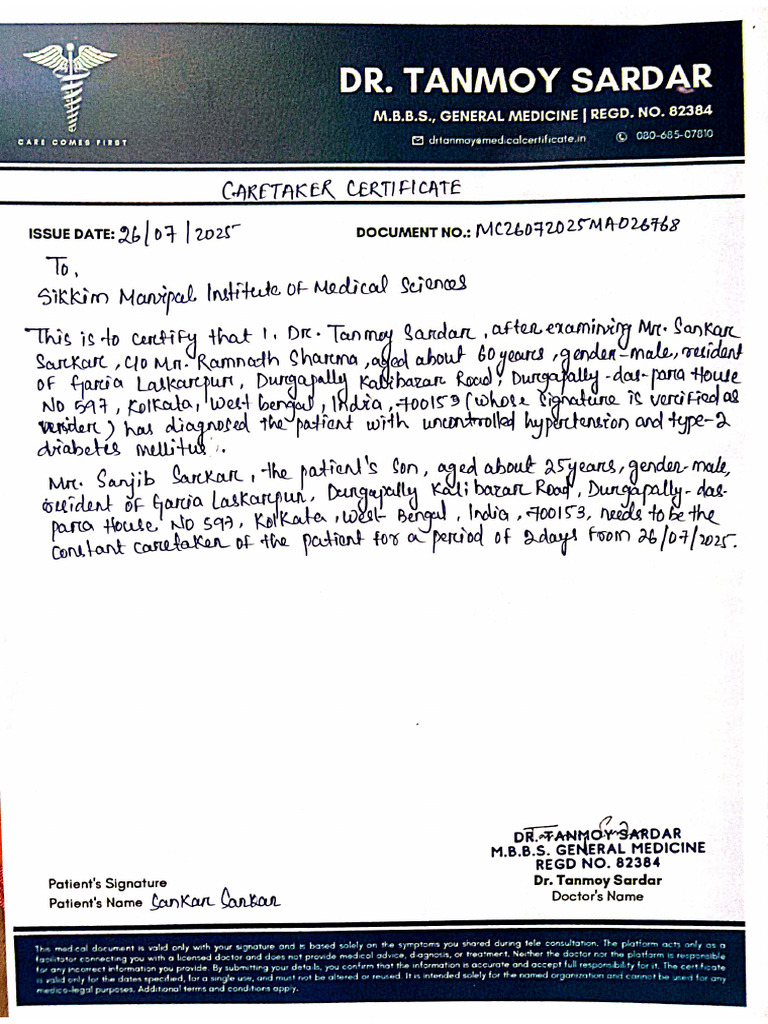 DR. TANMOY SARDAR
M.B.B.S., GENERAL MEDICINE | REGD. NO. 82384
CARE COMES FIRST
drtanmoy@medicalcertificate.in 080-685-07810
CARETAKER CERTIFICATE
ISSUE DATE: 26/07/2025 DOCUMENT NO.: MC26072025MA026768
To,
Sikkim Manipal Institute of Medical Sciences
This is to certify that I, Dr. Tanmoy Sardar, after examining Mr. Sankar
Sarkar, C/O Mr. Ramnath Sharma, aged about 60 years, gender-male, resident
of Garia Laskarpur, Durgapally Kalibazar Road, Durgapally-das-para House
No 597, Kolkata, West Bengal, India, 700153 (whose signature is verified as
) has diagnosed the patient with uncontrolled hypertension and type-2
diabetes mellitus.
Mr. Sanjib Sarkar, the patient's son, aged about 25 years, gender-male,
resident of Garia Laskarpur, Durgapally Kalibazar Road, Durgapally-das-
para House No 597, Kolkata, West Bengal, India, 700153, needs to be the
constant caretaker of the patient for a period of 2 days from 26/07/2025.
DR. TANMOY SARDAR
M.B.B.S. GENERAL MEDICINE
REGD NO. 82384
Patient's Signature Dr. Tanmoy Sardar
Patient's Name Sankar Sarkar Doctor's Name
This medical document is valid only with your signature and is based solely on the symptoms you shared during tele consultation. The platform acts only as a
facilitator connecting you with a licensed doctor and does not provide medical advice, diagnosis, or treatment. Neither the doctor nor the platform is responsible
for any incorrect information you provide. By submitting your details, you confirm that the information is accurate and accept full responsibility for it. The certificate
is valid only for the dates specified, for a single use, and must not be altered or reused. It is intended solely for the named organization and cannot be used for any
medico-legal purposes. Additional terms and conditions apply.